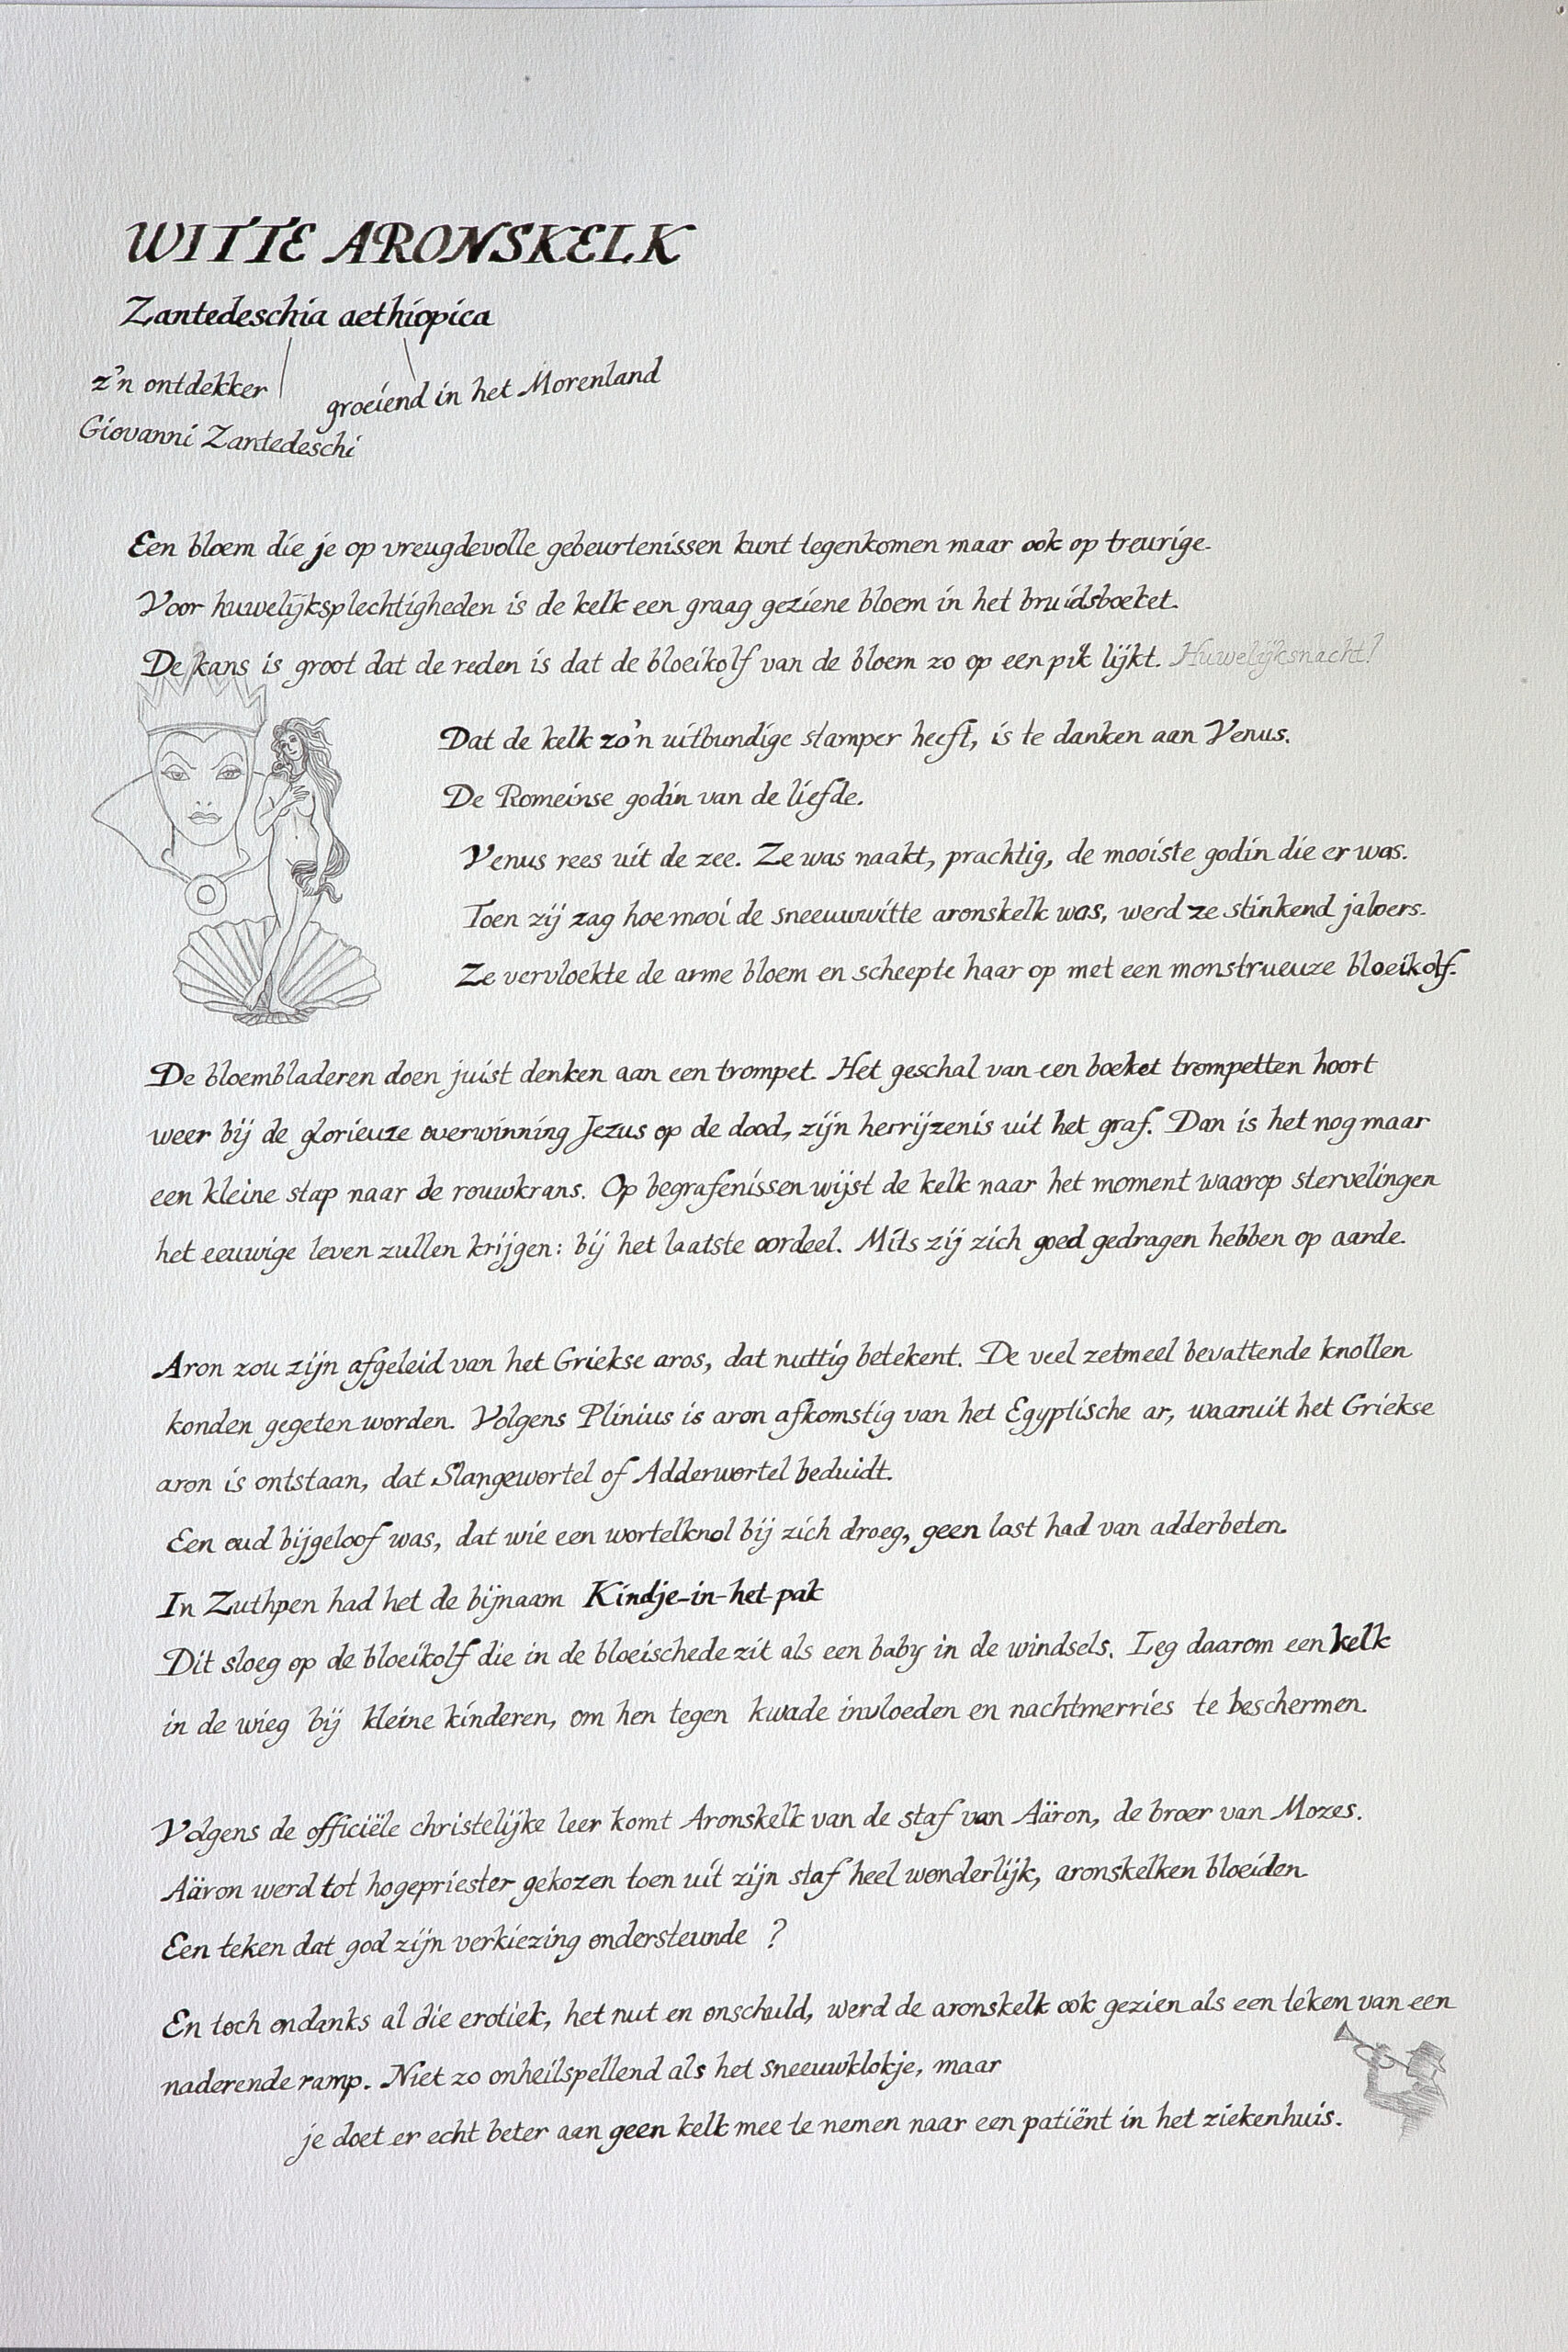 WITTE ARONSKELK
Zantedeschia aethiopica
z'n ontdekker
Giovanni Zantedeschi
groeiend in het Morenland
Een bloem die je op vreugdevolle gebeurtenissen kunt tegenkomen maar ook op treurige.
Voor huwelijksplechtigheden is de kelk een graag geziene bloem in het bruidsboeket.
De kans is groot dat de reden is dat de bloeikolf van de bloem zo op een pik lijkt. Huwelijksnacht!
Dat de kelk zo'n uitbundige stamper heeft, is te danken aan Venus.
De Romeinse godin van de liefde.
Venus rees uit de zee. Ze was naakt, prachtig, de mooiste godin die er was.
Toen zij zag hoe mooi de sneeuwwitte aronskelk was, werd ze stinkend jaloers.
Ze vervloekte de arme bloem en scheepte haar op met een monstrueuze bloeikolf.
De bloembladeren doen juist denken aan een trompet. Het geschal van een boeket trompetten hoort
weer bij de glorieuze overwinning Jezus op de dood, zijn herrijzenis uit het graf. Dan is het nog maar
een kleine stap naar de rouwkrans. Op begrafenissen wijst de kelk naar het moment waarop stervelingen
het eeuwige leven zullen krijgen: bij het laatste oordeel. Mits zij zich goed gedragen hebben op aarde.
Aron zou zijn afgeleid van het Griekse aros, dat nuttig betekent. De veel zetmeel bevattende knollen
konden gegeten worden. Volgens Plinius is aron afkomstig van het Egyptische ar, waaruit het Griekse
aron is ontstaan, dat Slangewortel of Adderwortel beduidt.
Een oud bijgeloof was, dat wie een wortelknol bij zich droeg, geen last had van adderbeten.
In Zuthpen had het de bijnaam Kindje-in-het-pak
Dit sloeg op de bloeikolf die in de bloeischede zit als een baby in de windsels. Leg daarom een kelk
in de wieg bij kleine kinderen, om hen tegen kwade invloeden en nachtmerries te beschermen.
Volgens de officiële christelijke leer komt Aronskelk van de staf van Aäron, de broer van Mozes.
Aäron werd tot hogepriester gekozen toen uit zijn staf heel wonderlijk, aronskelken bloeiden
Een teken dat god zijn verkiezing ondersteunde ?
En toch ondanks al die erotiek, het nut en onschuld, werd de aronskelk ook gezien als een teken van een
naderende ramp. Niet zo onheilspellend als het sneeuwklokje, maar
je doet er echt beter aan geen kelk mee te nemen naar een patiënt in het ziekenhuis.